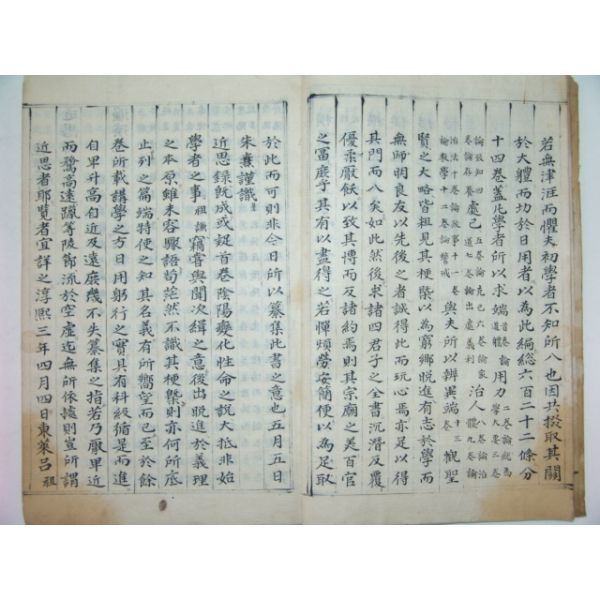 若無津涯而懼夫初學者不知所入也因共掇取其關
於大體而切於日用者以為此編総六百二十二條分
十四卷蓋凢學者所以求端首卷論道體用力二卷論為學大要三卷
論致知四卷論存養處己五卷論克己六卷論家道七卷論出處義利治人八卷論治體九卷論
治法十卷論政事十一卷論教學十二卷論警戒與夫所以辨異端十三卷觀聖
賢之大略皆粗見其梗槩以為窮鄉晩進有志於學而
無師明良友以先後之者誠得此而玩心焉亦足以得
其門而入矣如此然後求諸四君子之全書沉潛反覆
優柔厭飫以致其博而反諸約焉則其宗廟之美百官
之富庶乎其有以盡得之若憚煩勞安簡便以為足取
於此而可則非今日所以纂集此書之意也五月五日
朱熹謹識
近思錄旣成或疑首卷陰陽變化性命之說大抵非始
學者之事祖謙竊嘗與聞次緝之意後出晩進於義理
之本原雖未容驟語苟茫然不識其梗槩則亦何所底
止列之篇端特使之知其名義有所嚮望而已至於餘
卷所載講學之方日用躬行之實具有科級循是而進
自卑升高自近及遠庶幾不失纂集之指若乃厭卑近
而騖高遠躐等陵節流於空虛迄無所依據則豈所謂
近思者耶覽者宜詳之淳熙三年四月四日東萊呂祖